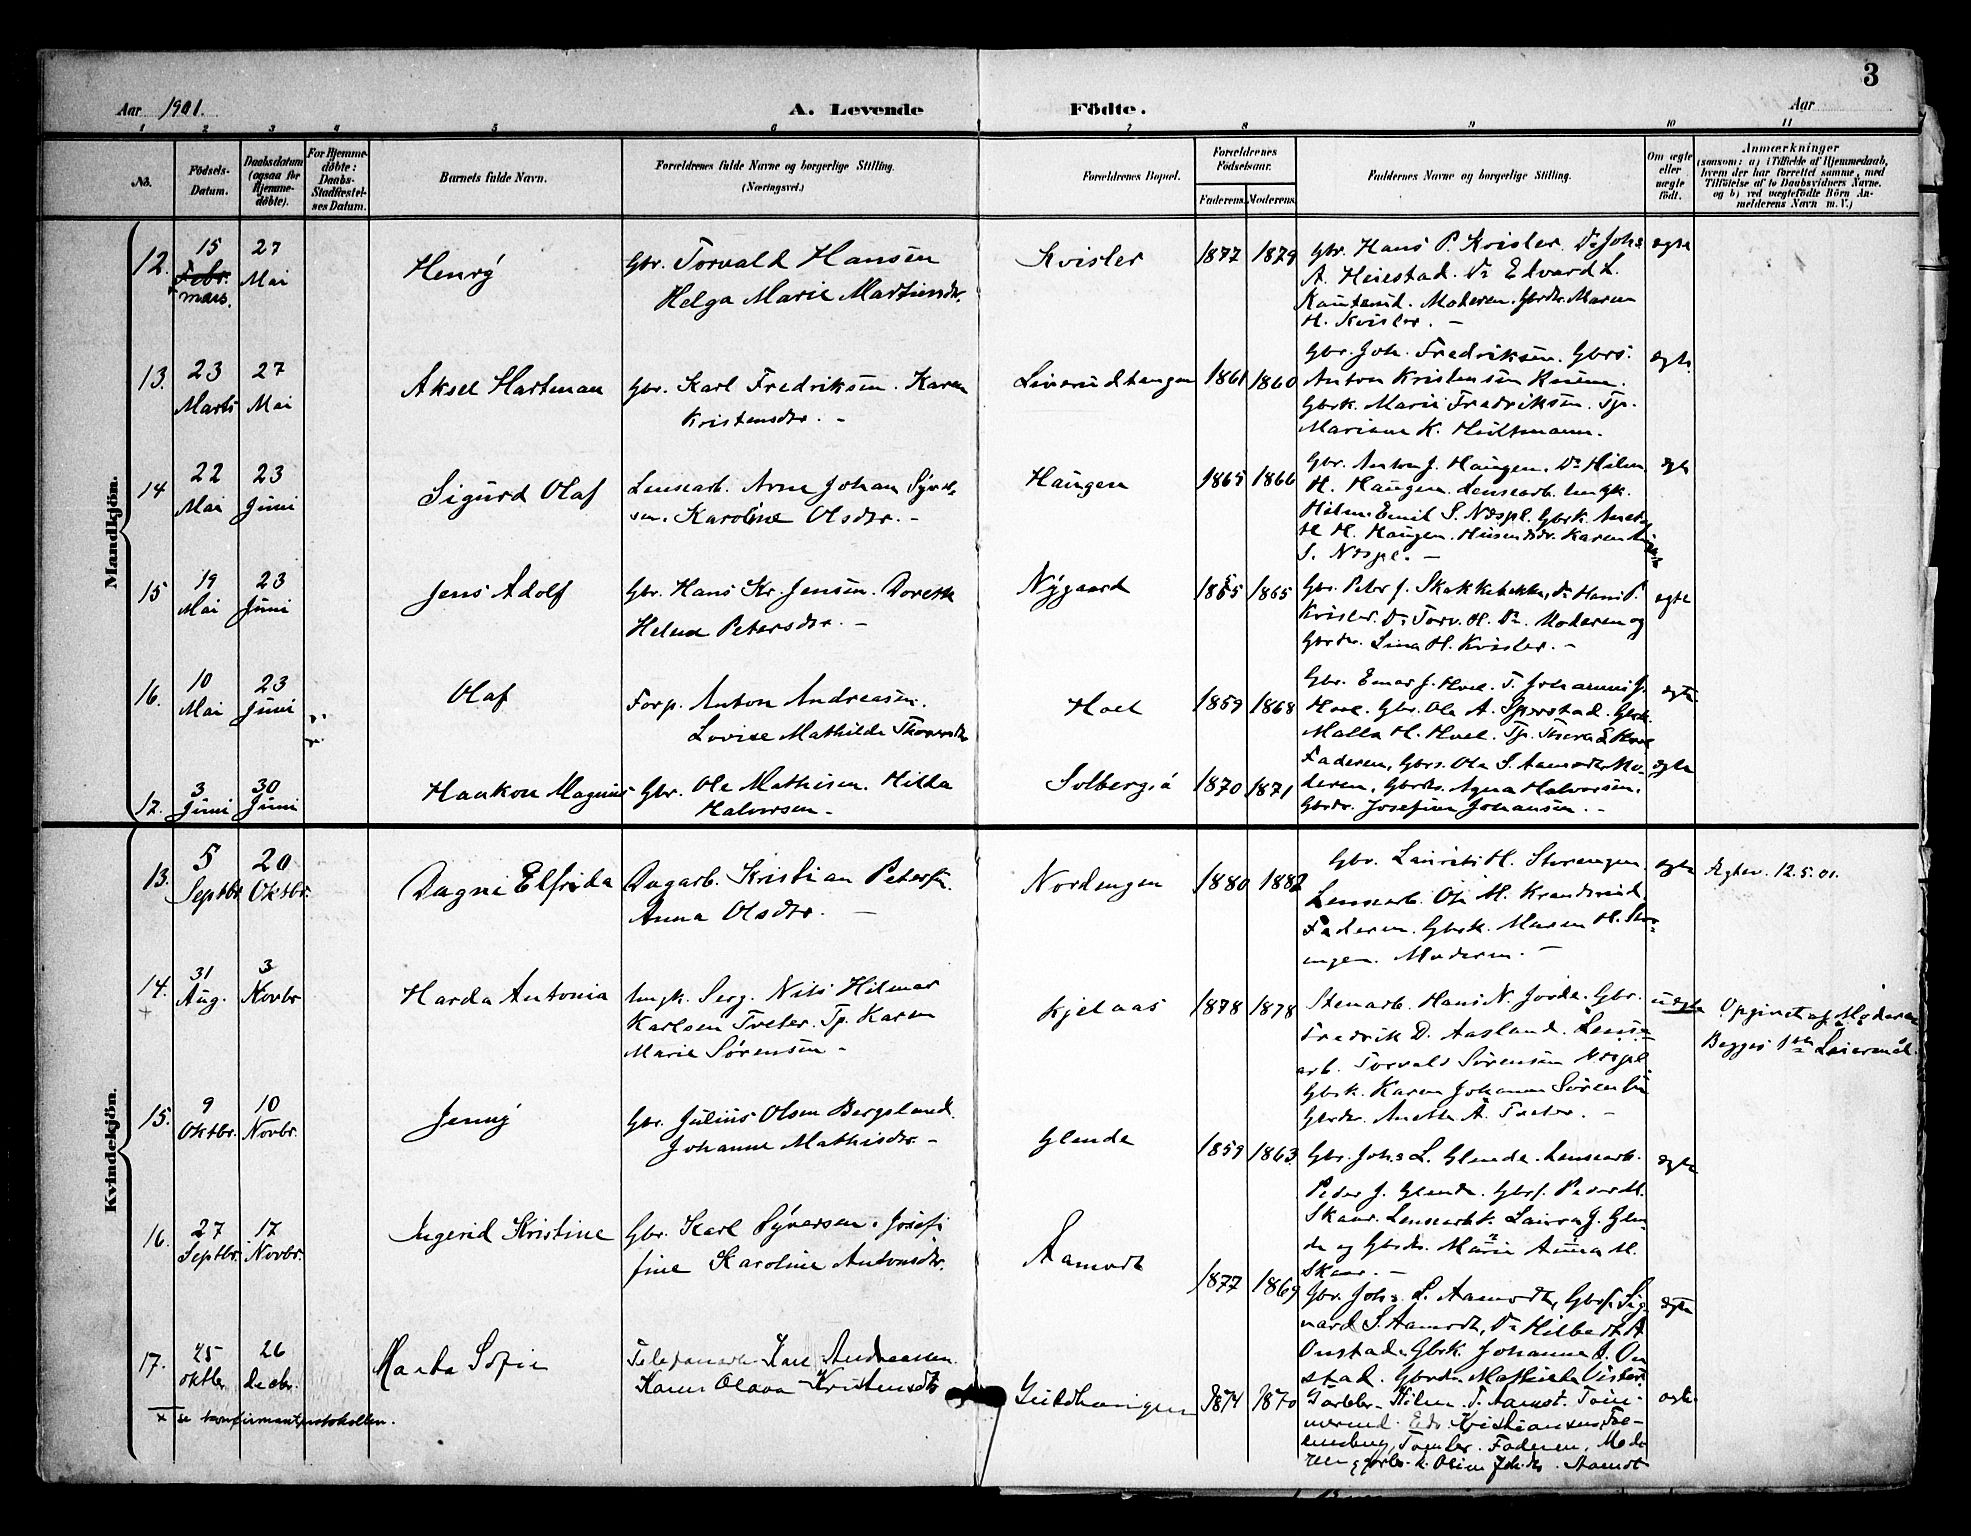 3
Aar 1901.
A. Levende Födte.
Aar
1 2 3 4 5 6 7 8 9 10 11
No.
Födsels-Datum.
Daabsdatum (ogsaa for Hjemmedöbte).
For Hjemmedöbte: Daabs-Stadfæstelses Datum.
Barnets fulde Navn.
Forældrenes fulde Navne og borgerlige Stilling. (Næringsvei.)
Forældrenes Bopæl.
Forældrenes Födselsaar.
Faderens. Moderens.
Faddernes Navne og borgerlige Stilling.
Om ægte eller uægte födt.
Anmærkninger
(saasom: a) i Tilfælde af Hjemmedaab, hvem der har forrettet samme, med Tilföielse af to Daabsvidners Navne, og b) ved uægtefödte Börn Anmelderens Navn m. V.)
Mandkjön.
12. 15 Febr. mars. 27 Mai
Henrÿ
Gbr. Torvald Hansen
Helga Marie Martinsdr.
Kvisler
1877 1879
Gbr. Hans P. Kvisler. Do Johs
A. Heiestad. Do Edvard L.
Moderen. Gbrdr. Maren
H. Kvisler. –
ægte
13. 23 Marts 27 Mai
Aksel Hartman
Gbr. Karl Fredriksen. Karen
Kristensdr. –
1861 1860
Gbr. Joh. Fredriksen. Gbrs.
Anton Kristensen
Gbrk. Marie Fredriksen. Tp.
Mariane K. Hultmann.
ægte
14 22 Mai 23 Juni
Sigurd Olaf
Lensearb. Arne Johan Syver-
sen. Karoline Olsdr. –
Haugen
1865 1866
Gbr. Anton J. Haugen. Do Hilm.
H. Haugen. Lensearb. Ungk.
Hilm. Emil S. Næspl. Gbrk. Anet
H. Haugen. Karen
S. Næspl. –
ægte
15 19 Mai 23 Juni
Jens Adolf
Gbr. Hans Kr. Jensen. Doreth
Helene Petersdr. –
Nÿgaard
1865 1865
Gbr. Peter J. Skakkebekke, Do Hans P.
Kvisler. Do Torv. H. Do. Moderen og
Gbrdr. Lina H. Kvisler. –
ægte
16. 10 Mai 23 Juni
Olaf
Forp. Anton Andreasen.
Lovise Mathilde Thorersdr
Hoel
1859 1868
Gbr. Einar J. Hoel. T. Johannes J.
Hoel. Gbr. Ole A. Sperstad. Gbrk.
Malla H. Hoel. Tp. Thora E. Hoel
ægte
17. 3 Juni 30 Juni
Haakon Magnus
Gbr. Ole Mathisen. Hilda
Halvorsen –
Solbergsø
1870 1871
Faderen, Gbrs. Ole S. Aamodt, Mo-
deren, Gbrdr. Agna Halvorsen.
Gbrdr. Josefine Johansen. –
ægte
Kvindekjön.
13. 5 Septbr. 20 Oktbr.
Dagni Elfrida
Dagarb. Kristian Petersen.
Anna Olsdr. –
Nordengen
1880 1882
Gbr. Laurits H. Sterengen
Lensearb. Ole H. Kranderud
Faderen. Gbrk. Maren H. Ster-
engen. Moderen –
ægte
Ægtev. 12.5.01.
14. + 31 Aug. 3 Novbr.
Harda Antonia
Ungk. Serg. Nils Hilmar
Karlsen Treter. Tp. Karen
Marie Sørensen –
Kjelaas
1878 1878
Stenarb. Hans N. Jorde. Gbr.
Fredrik D. Aasland. Lense-
arb. Torvald Sørensen Næspl
Gbrk. Karen Johanne Sørensen
Gbrdr. Anette A. Treter. –
uægte
Opgivet af Moderen
Begges 1ste Leiermaal.
15. 9 Oktbr. 10 Novbr.
Jennÿ
Gbr. Julius Olsen Bergsland.
Johanne Mathisdr. –
Glende
1859 1863.
Gbr. Johs L. Glende. Lensearb.
Peder J. Glende. Gbrs. Peder M.
Skaar. Lensearbk. Laura J. Glen-
de og Gbrdr. Marie Anna M.
Skaar. –
ægte
16. 27 Septbr. 17 Novbr.
Ingerid Kristine
Gbr. Karl Syversen. Josef-
fine Karoline Antonsdr.
Aamodt
1877 1869
Gbr. Johs. L. Aamodt, Gbrs. Sig-
vard S. Aamodt, Do Hilbert A
Onstad. Gbrk. Johanne J. On-
stad. Gbrdr. Mathilde
ægte
17. 25 oktbr 26 decbr.
Marta Sofie
Karl Andreassen.
Karen Olava Kristensdtr
1874 1870
Gårdbr. Hilm. T. Aamot.
Edv. Kristiansen,
Faderen, Mode-
ren, Aamodt
ægte
+ se konfirmantprotokollen.